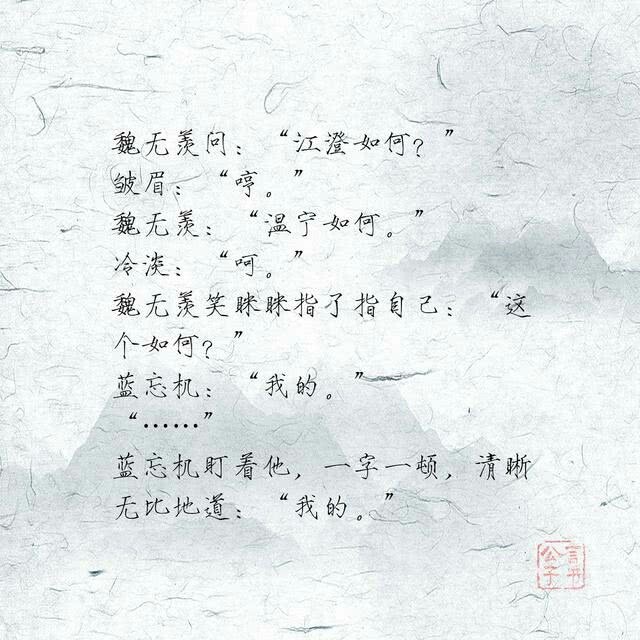 魏无羡问：“江澄如何？”
皱眉：“哼。”
魏无羡：“温宁如何。”
冷淡：“呵。”
魏无羡笑眯眯指了指自己：“这
个如何？”
蓝忘机：“我的。”
“……”
蓝忘机盯着他，一字一顿，清晰
无比地道：“我的。”
言书
公子